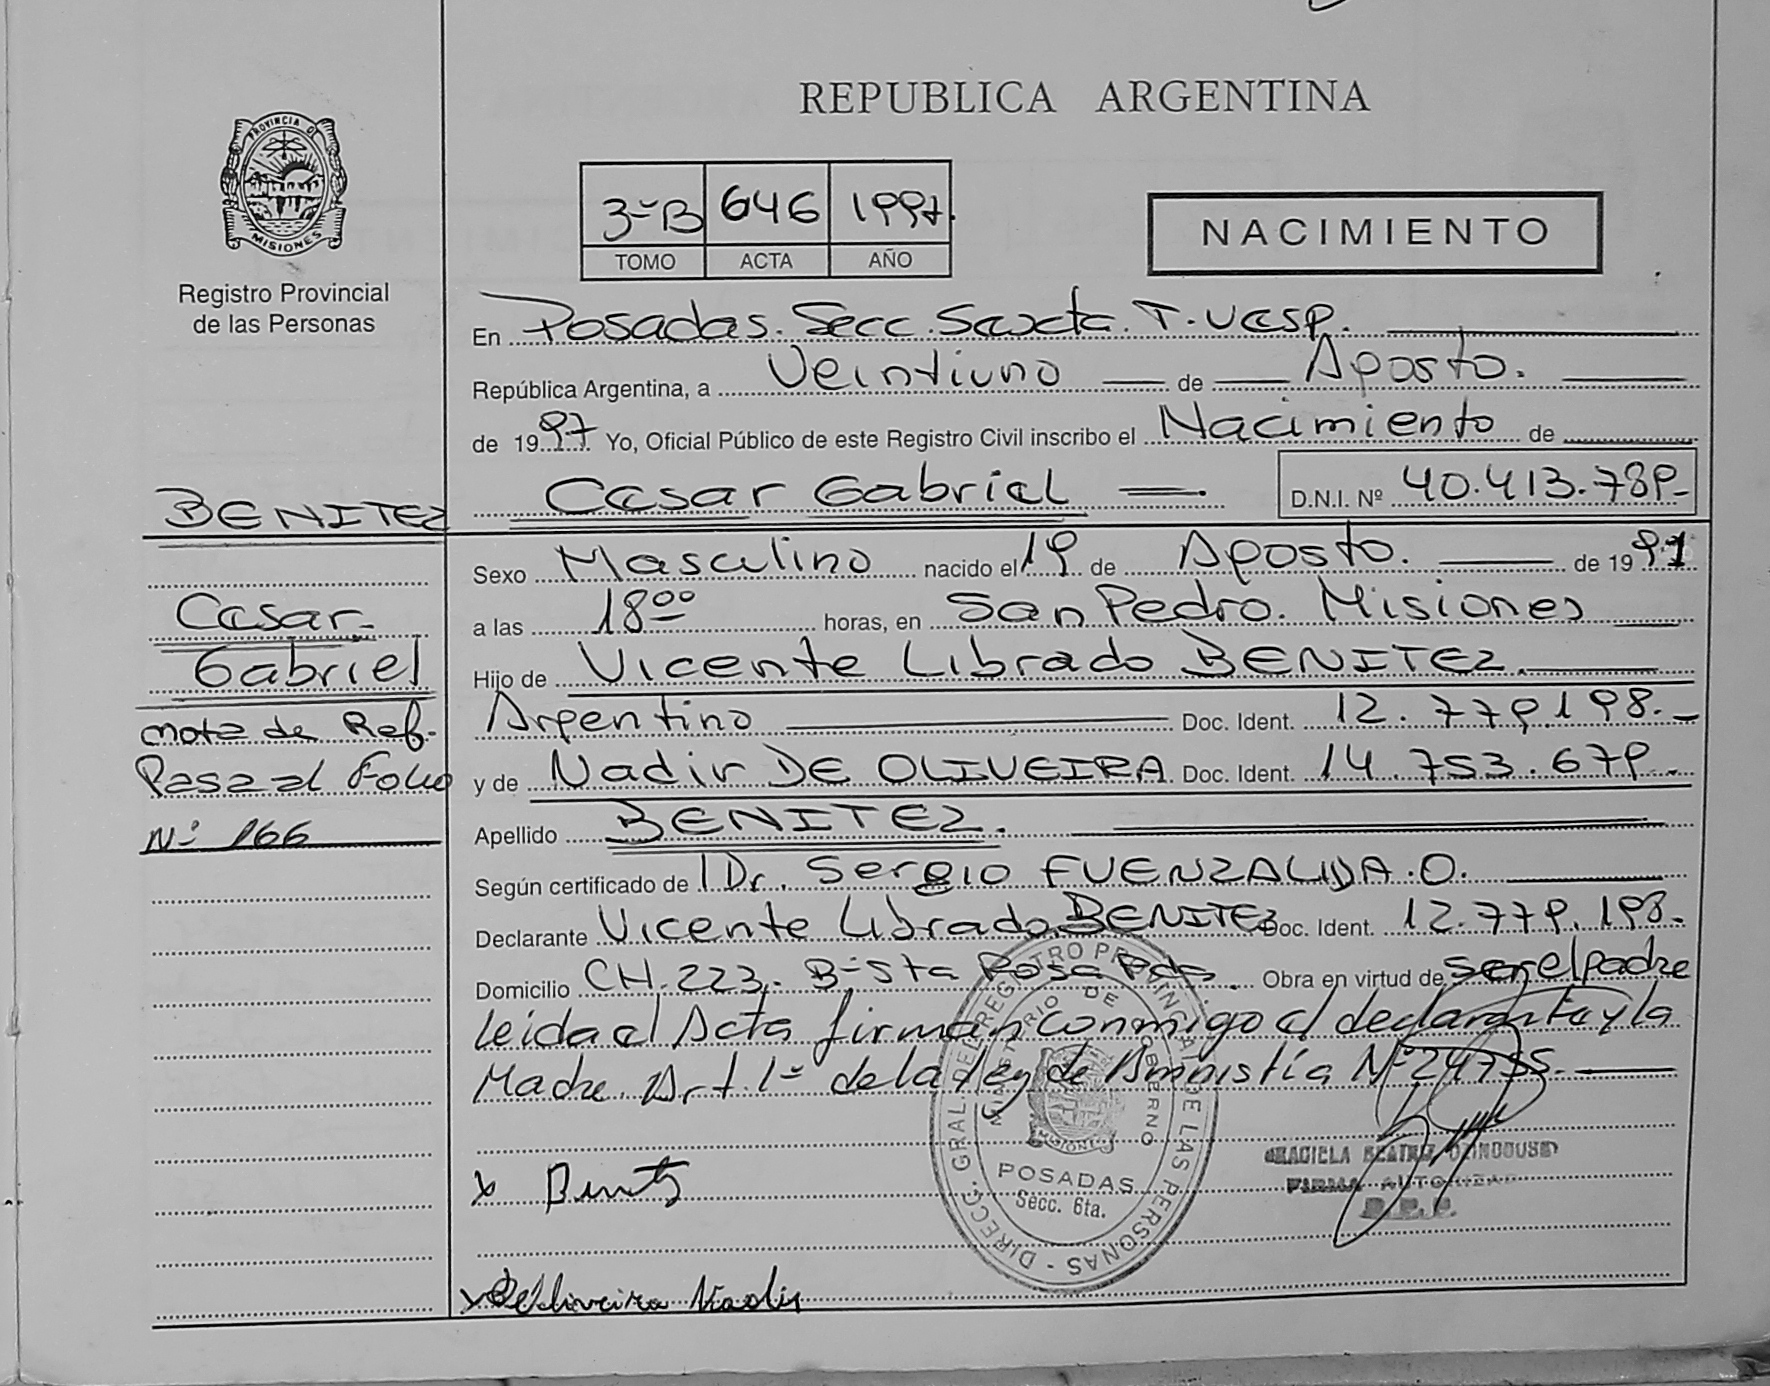 REPUBLICA ARGENTINA
PROVINCIA DE
MISIONES
Registro Provincial
de las Personas
3º B 646 1997.
TOMO ACTA AÑO
NACIMIENTO
En Posadas. Secc. Sexta. T. Vesp.
República Argentina, a Veintiuno de Agosto.
de 1997 Yo, Oficial Público de este Registro Civil inscribo el Nacimiento de
Cesar Gabriel D.N.I. Nº 40.413.789-
BENITEZ
Cesar-
Gabriel
nota de Ref.
Pasa al Folio
Nº 166
Sexo Masculino nacido el 19 de Agosto. de 1997
a las 18°° horas, en San Pedro. Misiones
Hijo de Vicente Librado BENITEZ.
Argentino Doc. Ident. 12.779.198.-
y de Nadir DE OLIVEIRA Doc. Ident. 14.753.679.-
Apellido BENITEZ.
Según certificado de Dr. Sergio FUENZALIDA.O.
Declarante Vicente Librado BENITEZ Doc. Ident. 12.779.198.-
Domicilio CH.223. Bº Sta Rosa Pdas. Obra en virtud de ser el padre
leida el Acta firman conmigo el declarante y la
Madre. Art. 1º de la ley de Amnistía Nº 24755.
x Benitz
x De Oliveira Nadir
DIRECC. GRAL. DEL REGISTRO PROVINCIAL DE LAS PERSONAS
MINISTERIO DE GOBIERNO
MISIONES
POSADAS
Secc. 6ta.
GRACIELA BEATRIZ
FIRMA AUTORIZADA